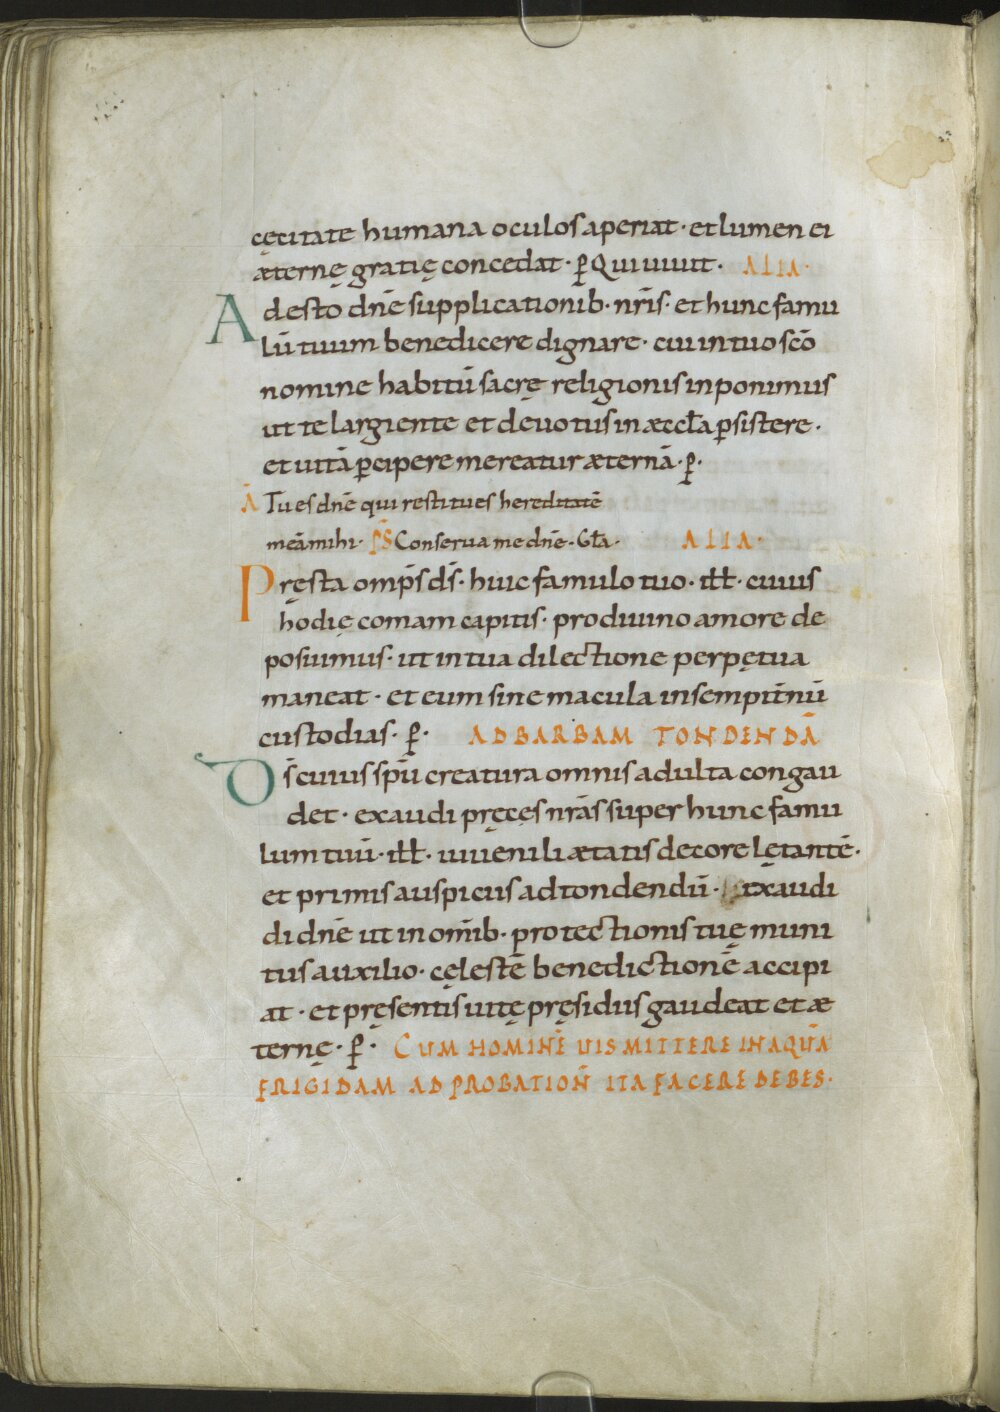 cęcitate humana oculos aperiat · et lumen ei
æternę gratię concedat · ꝑ Qui uiuit · ALIA ·
Adesto dn̄e supplicationib · nr̄is · et hunc famu
lū tuum benedicere dignare · cui in tuo sc̄o
nomine habitū sacrę religionis inponimus
ut te largiente et deuotus in æccl̄a ꝑsistere ·
et uitā ꝑcipere mereatur æternā · ꝑ ·
Ā Tu es dn̄e qui restitues hereditatē
meā mihi · PS̄ Conserua me dn̄e · Gl̄a · ALIA ·
Pręsta omp̄s d̄s · huic famulo tuo · ill̄ · cuius
hodię comam capitis · pro diuino amore de
posuimus · ut in tua dilectione perpętua
maneat · et eum sine macula in sempit̄nū
custodias · ꝑ · AD BARBAM TONDENDĀ
Ds̄ cuius sp̄u creatura omnis adulta congau
det · exaudi pręcęs nr̄as super hunc famu
lum tuū · ill̄ · iuuenili ætatis decore lętantē ·
et primis auspiciis ad tondendū · exaudi
di dn̄e ut in om̄ib · protectionis tuę muni
tus auxilio · cęlestē benedictionē accipi
at · et pręsentis uitę pręsidiis gaudeat et æ
ternę · ꝑ · CUM HOMINĒ UIS MITTERE IN AQUĀ
FRIGIDAM AD PROBATION̄ ITA FACERE DEBES ·